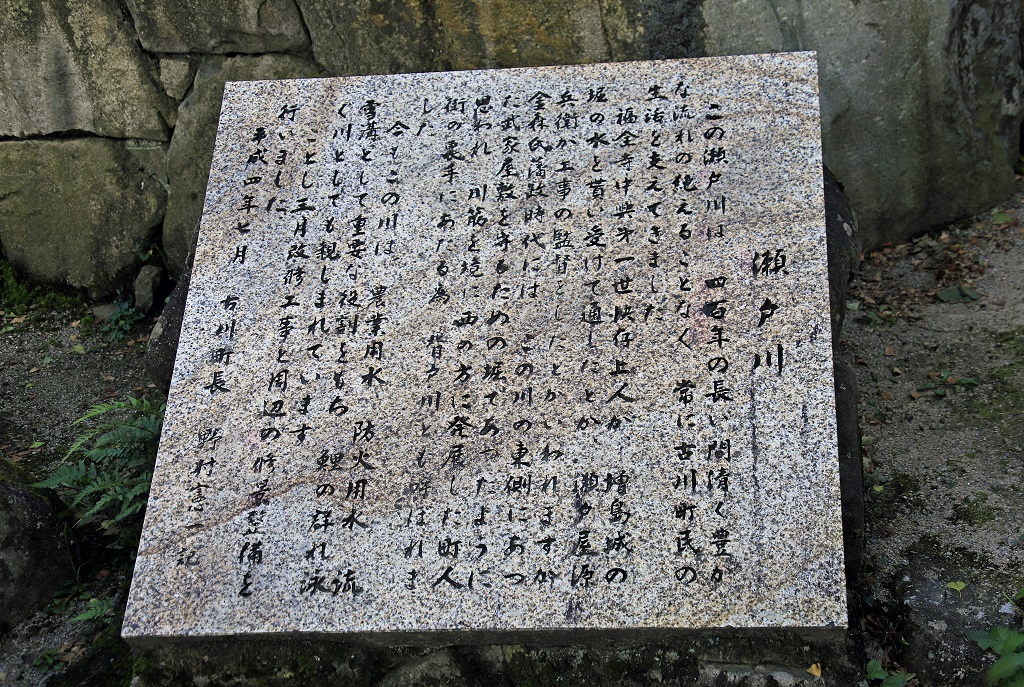 瀬戸川
この瀬戸川は 四百年の長い間清く豊か
な流れの絶えることなく 常に古川町民の
生活を支えてきました
福全寺中興第一世快存上人が 増島城の
堀の水を貰い受けて通したとか 瀬戸屋源
兵衛が工事の監督をしたとかいわれますが
金森氏藩政時代には この川の東側にあっ
た武家屋敷を守るための堀であったように
思われ 川筋を境に西の方に発展した町人
街の裏手にあたる為 背戸川とも呼ばれま
した
今もこの川は 農業用水 防火用水 流
雪溝として重要な役割をもち 鯉の群れ泳
ぐ川としても親しまれています
ことし三月改修工事と周辺の修景整備を
行いました
平成四年七月 古川町長 野村憲一記